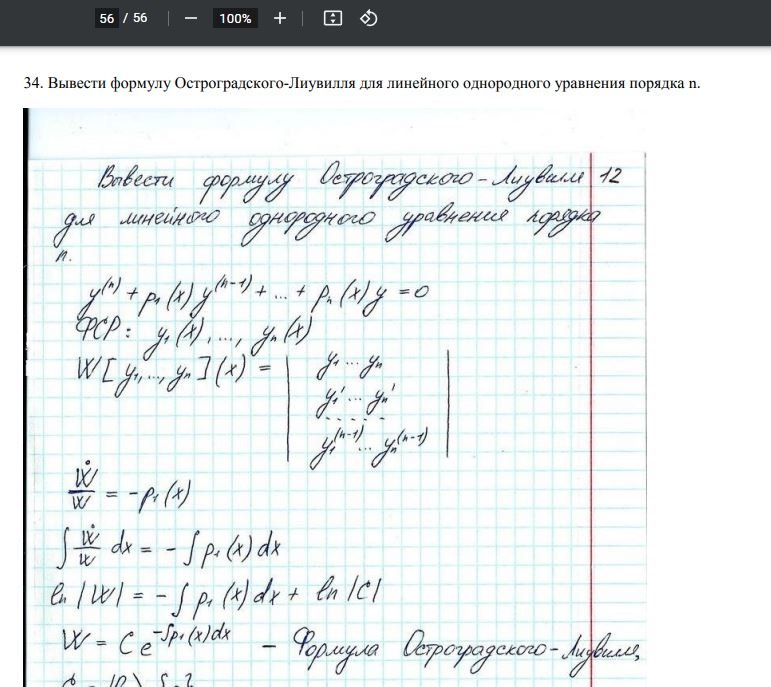 56 / 56 — 100% +
34. Вывести формулу Остроградского-Лиувилля для линейного однородного уравнения порядка n.
Вывести формулу Остроградского-Лиувилля 12
для линейного однородного уравнения порядка
n.
y⁽ⁿ⁾ + p₁(x)y⁽ⁿ⁻¹⁾ + ... + pₙ(x)y = 0
ФСР: y₁(x), ..., yₙ(x)
W[y₁, ..., yₙ](x) = | y₁ ... yₙ |
| y₁' ... yₙ' |
| - - - - - |
| y₁⁽ⁿ⁻¹⁾ ... yₙ⁽ⁿ⁻¹⁾ |
Ẇ/W = -p₁(x)
∫ Ẇ/W dx = -∫ p₁(x)dx
ln|W| = -∫ p₁(x)dx + ln|C|
W = Ce^(-∫p₁(x)dx) – Формула Остроградского-Лиувилля,